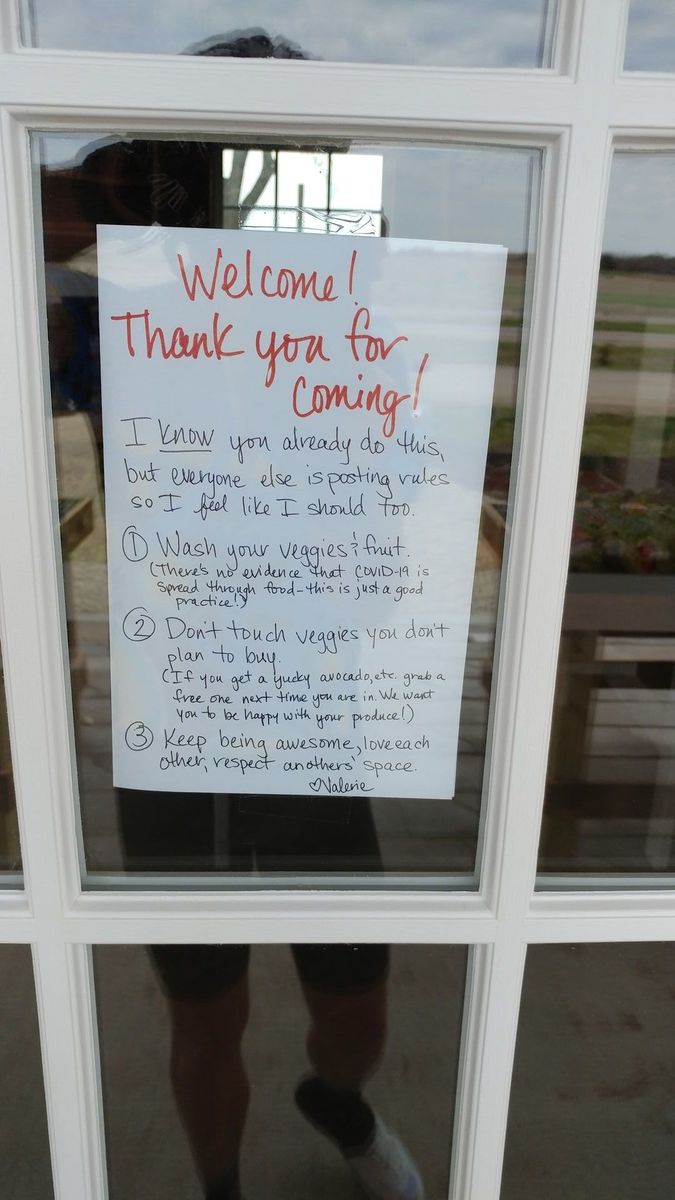 Welcome!
Thank you for
coming!
I know you already do this,
but everyone else is posting rules
so I feel like I should too.
① Wash your veggies & fruit.
(There's no evidence that COVID-19 is
spread through food - this is just a good
practice!)
② Don't touch veggies you don't
plan to buy.
(If you get a yucky avocado, etc. grab a
free one next time you are in. We want
you to be happy with your produce!)
③ Keep being awesome, love each
other, respect anothers' space.
♡Valerie